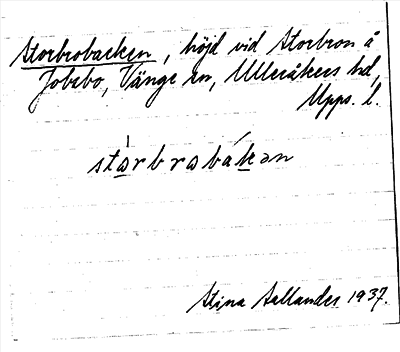 Storbrobacken, höjd vid Storbron å
Jobsbo, Vänge sn, Ulleråkers hd,
Upps. l.
stàrbrabákən
Stina Sallander 1937.